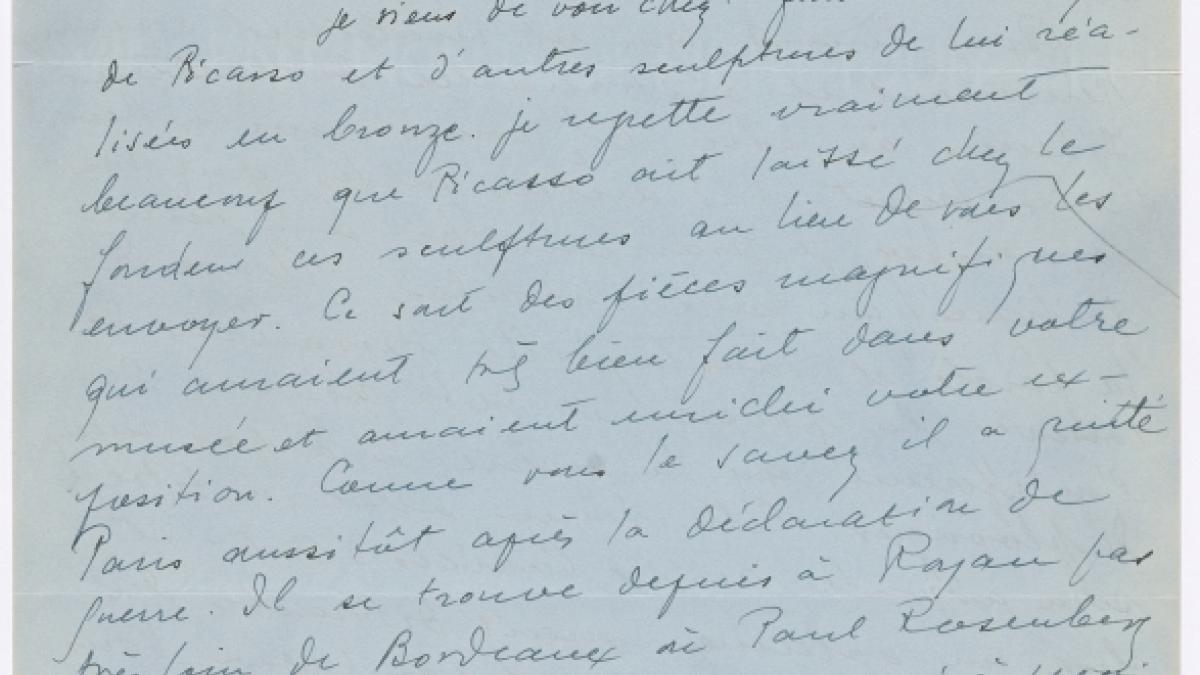 je viens de voir chez
de Picasso et d'autres sculptures de lui réa-
lisées en bronze. je regrette vraiment
beaucoup que Picasso ait laissé chez le
fondeur ces sculptures au lieu de vous les
envoyer. Ce sont des pièces magnifiques
qui auraient très bien fait dans votre
musée et auraient enrichi votre ex-
position. Comme vous le savez il a quitté
Paris aussitôt après la déclaration de
guerre. Il se trouve depuis à Royan pas
très loin de Bordeaux où Paul Rosenberg